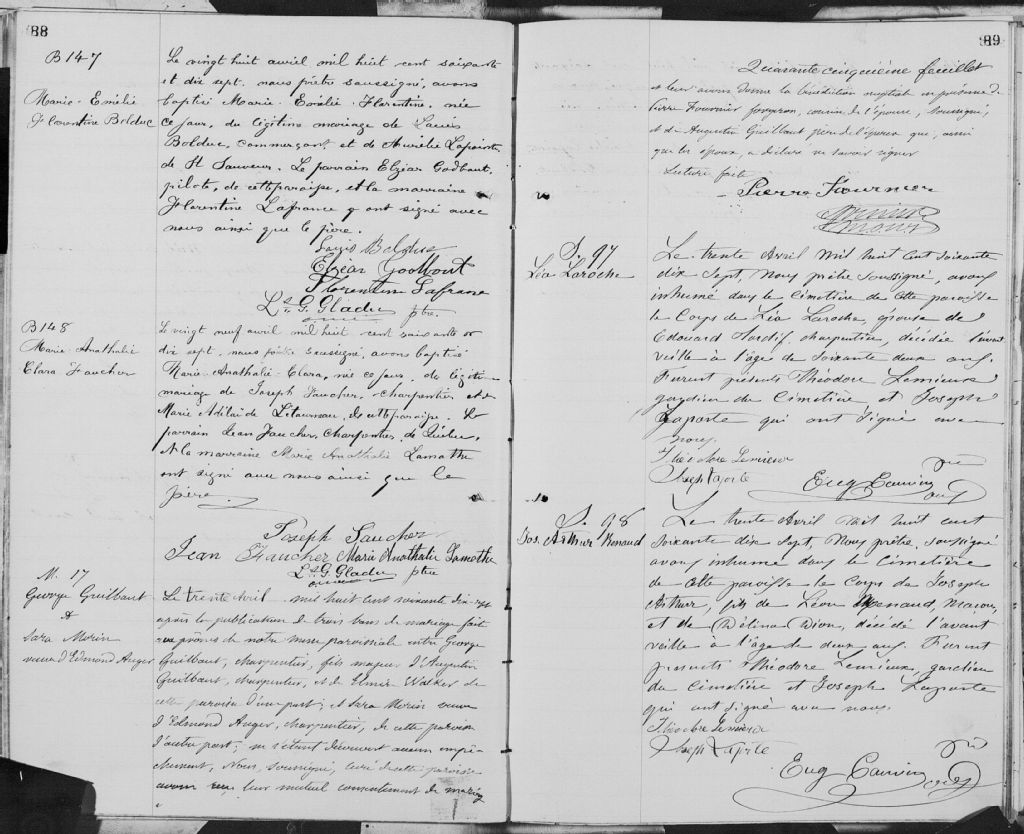 88
B 147
Marie-Emélie
Florentine Bolduc
Le vingt huit avril mil huit cent soixante
et dix sept, nous prêtre soussigné, avons
baptisé Marie-Emélie-Florentine, née
ce jour, du légitime mariage de Louis
Bolduc, commerçant et de Aurélie Lapointe,
de St Sauveur. Le parrain Elzéar Godbout,
pilote, de cette paroisse, et la marraine
Florentine Lafrance y ont signé avec
nous ainsi que le père.
Louis Bolduc
Elzéar Godbout
Florentine Lafrance
Ls. G. Gladu ptre.
B 148
Marie-Anathalie
Clara Faucher
Le vingt neuf avril mil huit cent soixante et
dix sept, nous prêtre soussigné, avons baptisé
Marie-Anathalie-Clara, née ce jour, du légitime
mariage de Joseph Faucher, charpentier et de
Marie Adélaïde Létourneau, de cette paroisse. Le
parrain Jean Faucher, charpentier, de Québec,
et la marraine Marie Anathalie Lamothe
ont signé avec nous ainsi que le
père.
Joseph Faucher
Jean Faucher Marie Anathalie Lamothe
Ls. G. Gladu ptre
M. 17
George Guilbaut
&
Sara Morin
veuve d'Edmond Auger
Le trente Avril mil huit cent soixante dix-sept
après la publication de trois bans de mariage faite
aux prônes de notre messe paroissiale entre George
Guilbaut, charpentier, fils majeur d'Augustin
Guilbaut, charpentier, et de Elmire Walker de
cette paroisse d'une part; et Sara Morin veuve
d'Edmond Auger, charpentier, de cette paroisse
d'autre part; ne s'étant découvert aucun empê-
chement, Nous, soussigné, curé de cette paroisse
avons reçu leur mutuel consentement de mariage
89
Quarante cinquième feuillet
et leur avons donné la bénédiction nuptiale en présence de
Pierre Fournier forgeron, cousin de l'épouse, soussigné,
et de Augustin Guilbaut père de l'époux qui, ainsi
que les époux, a déclaré ne savoir signer
Lecture faite
Pierre Fournier
S. 97
Léa Laroche
Le trente Avril mil huit cent soixante
dix sept, Nous prêtre soussigné, avons
inhumé dans le Cimetière de cette paroisse
le Corps de Léa Laroche, épouse de
Edouard Hardif, charpentier, décédée l'avant
veille à l'âge de soixante deux ans.
Furent présents Théodore Lemieux
gardien du Cimetière et Joseph
Laporte qui ont signé avec
nous.
Théodore Lemieux
Joseph Laporte
S. 98
Jos. Arthur Renaud
Le trente Avril mil huit cent
soixante dix sept, Nous prêtre, soussigné
avons inhumé dans le Cimetière
de cette paroisse le Corps de Joseph
Arthur, fils de Léon Renaud, maçon,
et de Délina Dion, décédé l'avant
veille à l'âge de deux ans. Furent
présents Théodore Lemieux, gardien
du Cimetière et Joseph Laporte
qui ont signé avec nous
Théodore Lemieux
Joseph Laporte